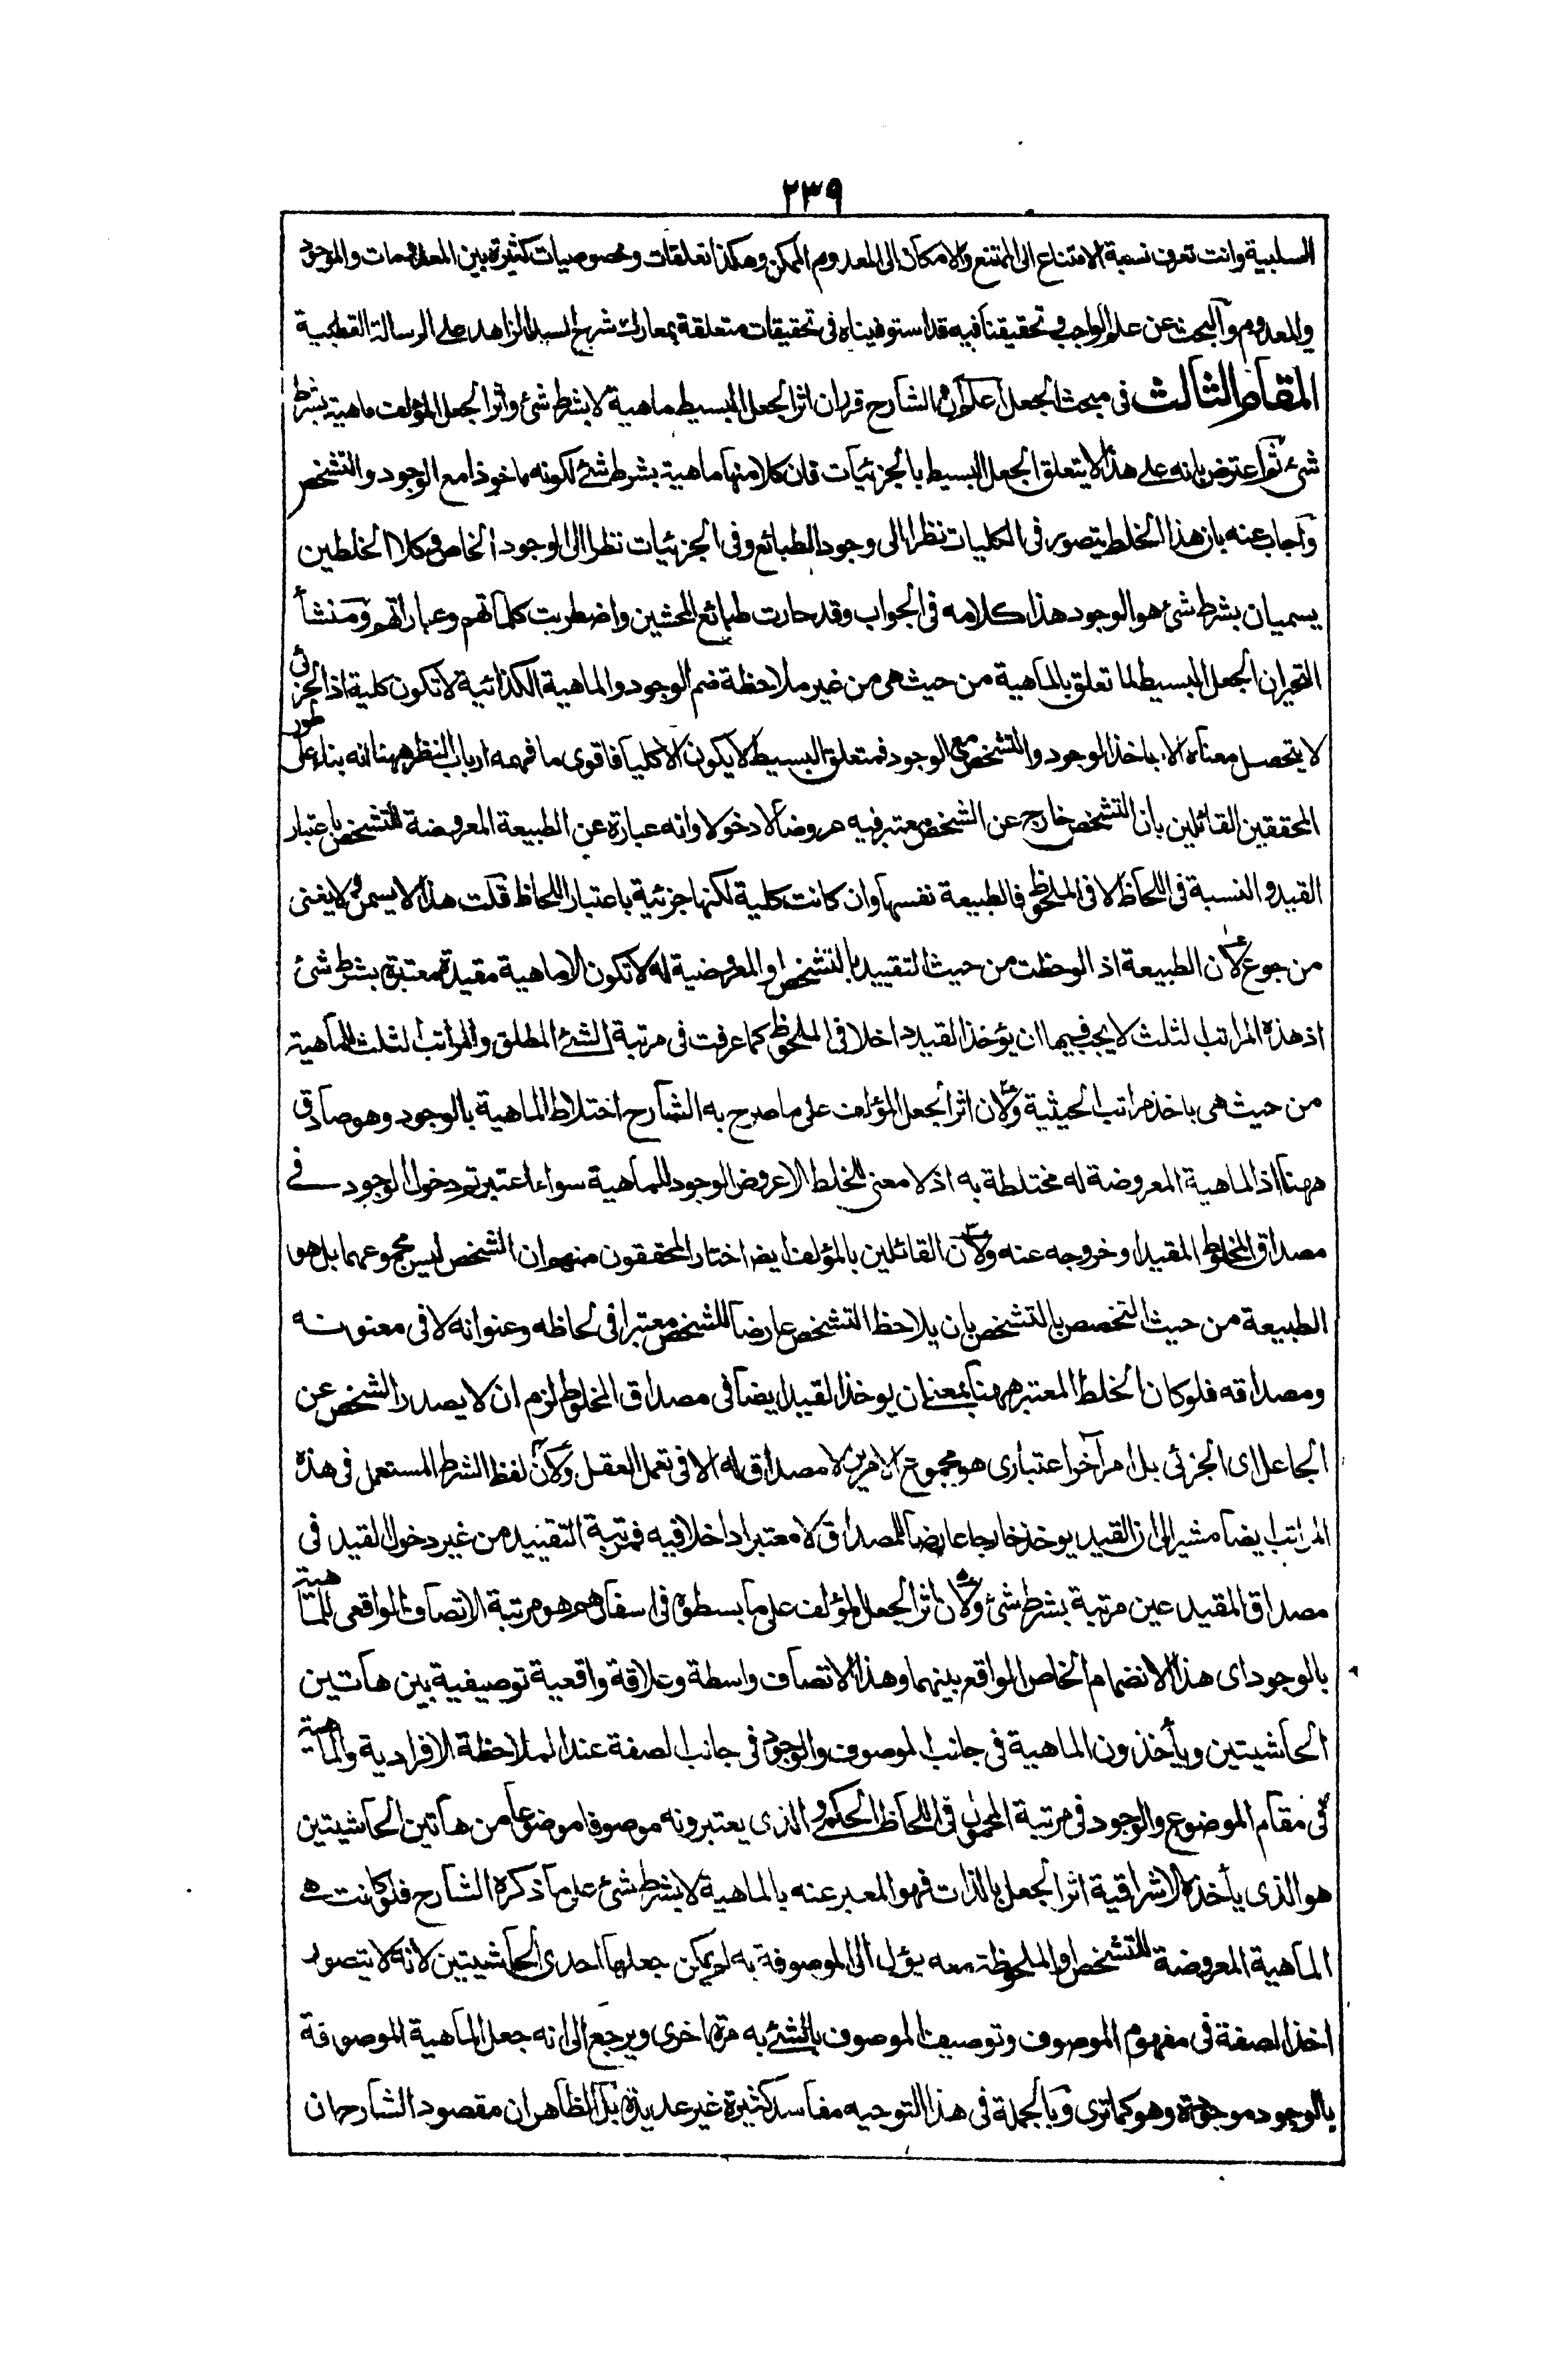 ٢٣٩
السلبية وانت تعرف نسبة الامتناع الى الممتنع والامكان الى المعدوم الممكن وهكذا تعلقات وخصوصيات كثيرة بين المعدومات والموجود
والمعدوم والبحث عن علم الواجب وتحقيقنا فيه قد استوفيناه فى تحقيقات متعلقة بمعارك شرح السيد الزاهد على الرسالة القطبية
المقام الثالث فى مبحث الجعل اعلم ان الشارح قرر ان اثر الجعل البسيط ماهية لا بشرط شئ واثر الجعل المؤلف ماهية بشرط
شئ ثم اعترض بانه على هذا لا يتعلق الجعل البسيط بالجزئيات فان كلا منها ماهية بشرط شئ لكونه ماخوذا مع الوجود والتشخص
واجاب عنه بان هذا الخلط يتصور فى الكليات نظرا الى وجود الطبائع وفى الجزئيات نظرا الى الوجود الخاص وكلا الخلطين
يسميان بشرط شئ هو الوجود هذا كلامه فى الجواب وقد حارت طبائع المحشين واضطربت كلماتهم وعباراتهم ومنشأ
التحير ان الجعل البسيط لما تعلق بالماهية من حيث هى من غير ملاحظة ضم الوجود والماهية الكذائية لا تكون كلية اذ الجزئى
لا يتحصل معناه الا باخذ الوجود والتشخص مع الوجود فمتعلق البسيط لا يكون الا كليا فاقوى ما فهمه ارباب النظر ههنا انه بناء على طور
المحققين القائلين بان التشخص خارج عن الشخص معتبر فيه عروضا لا دخولا وانه عبارة عن الطبيعة المعروضة للتشخص باعتبار
القيد والنسبة فى اللحاظ لا فى الملحوظ فالطبيعة نفسها وان كانت كلية لكنها جزئية باعتبار اللحاظ قلت هذا لا يسمن ولا يغنى
من جوع لان الطبيعة اذا لوحظت من حيث التقييد بالتشخص او المعروضية له لا تكون الا ماهية مقيدة معتبرة بشرط شئ
اذ هذه المراتب الثلث لا يجب فيها ان يؤخذ القيد داخلا فى الملحوظ كما عرفت فى مرتبة الشئ المطلق والمراتب الثلث للماهية
من حيث هى باخذ مراتب الحيثية ولان اثر الجعل المؤلف على ما صرح به الشارح اختلاط الماهية بالوجود وهو صادق
ههنا اذ الماهية المعروضة له مختلطة به اذ لا معنى للخلط الا عروض الوجود للماهية سواء اعتبرتم دخول الوجود فى
مصداق المخلوط المقيد او خروجه عنه ولان القائلين بالمؤلف ايضا اختار المحققون منهم ان الشخص ليس مجموعهما بل هو
الطبيعة من حيث التخصص بالتشخص بان يلاحظ التشخص عارضا للشخص معتبرا فى لحاظه وعنوانه لا فى معنونه
ومصداقه فلو كان الخلط المعتبر ههنا بمعنى ان يوخذ القيد ايضا فى مصداق المخلوط لزم ان لا يصدر الشخص عن
الجاعل اى الجزئى بل امر آخر اعتبارى هو مجموع الامرين لا مصداق له الا فى تعمل العقل ولان لفظ الشرط المستعمل فى هذه
المراتب ايضا مشير الى ان القيد يوخذ خارجا عارضا للمصداق لا معتبرا داخلا فيه فمرتبة التقييد من غير دخول القيد فى
مصداق المقيد عين مرتبة بشرط شئ ولان اثر الجعل المؤلف على ما بسطوه فى اسفارهم هو مرتبة الاتصاف الواقعى للماهية
بالوجود اى هذا الانضمام الخاص الواقع بينهما وهذا الاتصاف واسطة وعلاقة واقعية توصيفية بين هاتين
الحاشيتين ويأخذون الماهية فى جانب الموصوف والوجود فى جانب الصفة عند الملاحظة الافرادية والماهية
فى مقام الموضوع والوجود فى مرتبة المحمول فى اللحاظ الحكمى والذى يعتبرونه موصوفا موضوعا من هاتين الحاشيتين
هو الذى يأخذه الاشراقية اثر الجعل بالذات فهو المعبر عنه بالماهية لا بشرط شئ على ما ذكره الشارح فلو كانت هى
الماهية المعروضة للتشخص او الملحوظة معه يؤل الى الموصوفة به لم يمكن جعلها احدى الحاشيتين لانه لا يتصور
اخذ الصفة فى مفهوم الموصوف وتوصيف الموصوف بالشئ به مرة اخرى ويرجع الى انه جعل الماهية الموصوفة
بالوجود موجودة وهو كما ترى وبالجملة فى هذا التوجيه مفاسد كثيرة غير عديدة بل الظاهر ان مقصود الشارح ان